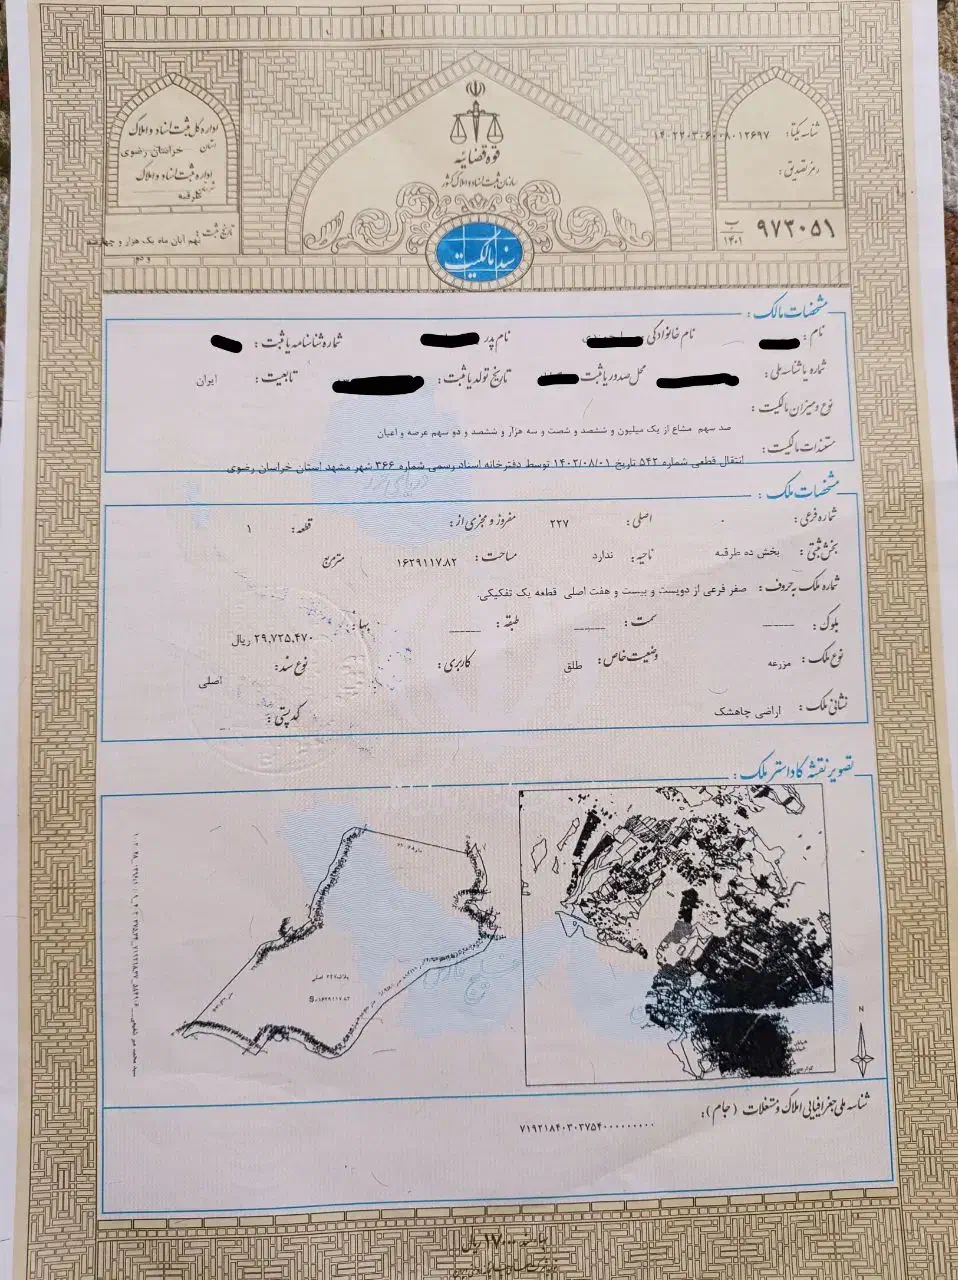 قوه قضائیه
سازمان ثبت اسناد و املاک کشور
سند مالکیت
شناسه یکتا: ۱۴۰۲۲۰۳۰۶۰۰۸۰۱۲۶۹۷
رمز تصدیق:
۹۷۳۰۵۱ ب ۱۴۰۱
اداره کل ثبت اسناد و املاک
استان خراسان رضوی
اداره ثبت اسناد و املاک
شهرستان طرقبه
تاریخ ثبت: نهم آبان ماه یک هزار و چهارصد
و دو
مشخصات مالک:
نام: نام خانوادگی نام پدر شماره شناسنامه یا ثبت:
شماره یا شناسه ملی: محل صدور یا ثبت تاریخ تولد یا ثبت: تابعیت: ایران
نوع و میزان مالکیت:
صد سهم مشاع از یک میلیون و ششصد و شصت و سه هزار و ششصد و دو سهم عرصه و اعیان
مستندات مالکیت:
انتقال قطعی شماره ۵۴۲ تاریخ ۱۴۰۲/۰۸/۰۱ توسط دفترخانه اسناد رسمی شماره ۳۶۶ شهر مشهد استان خراسان رضوی
دریای خزر
مشخصات ملک:
شماره فرعی: ۰ اصلی: ۲۲۷ مفروز و مجزی از: قطعه: ۱
بخش ثبتی: بخش ده طرقبه ناحیه: ندارد مساحت: ۱۶۲۹۱۱۷.۸۲ مترمربع
شماره ملک به حروف: صفر فرعی از دویست و بیست و هفت اصلی قطعه یک تفکیکی.
بلوک: ____ سمت: ____ طبقه: ____ بها: ۲۹,۷۲۵,۴۷۰ ریال
نوع ملک: مزرعه وضعیت خاص: طلق کاربری: نوع سند: اصلی
نشانی ملک: اراضی چاهشک کد پستی: _
تصویر نقشه کاداستر ملک:
پلاک ۲۲۷ اصلی
S=۱۶۲۹۱۱۷.۸۲
خلیج فارس
N
شناسه ملی جغرافیایی املاک و مستغلات (جام):
۷۱۹۲۱۸۴۰۳۰۲۷۵۴۰۰۰۰۰۰۰۰۰۰